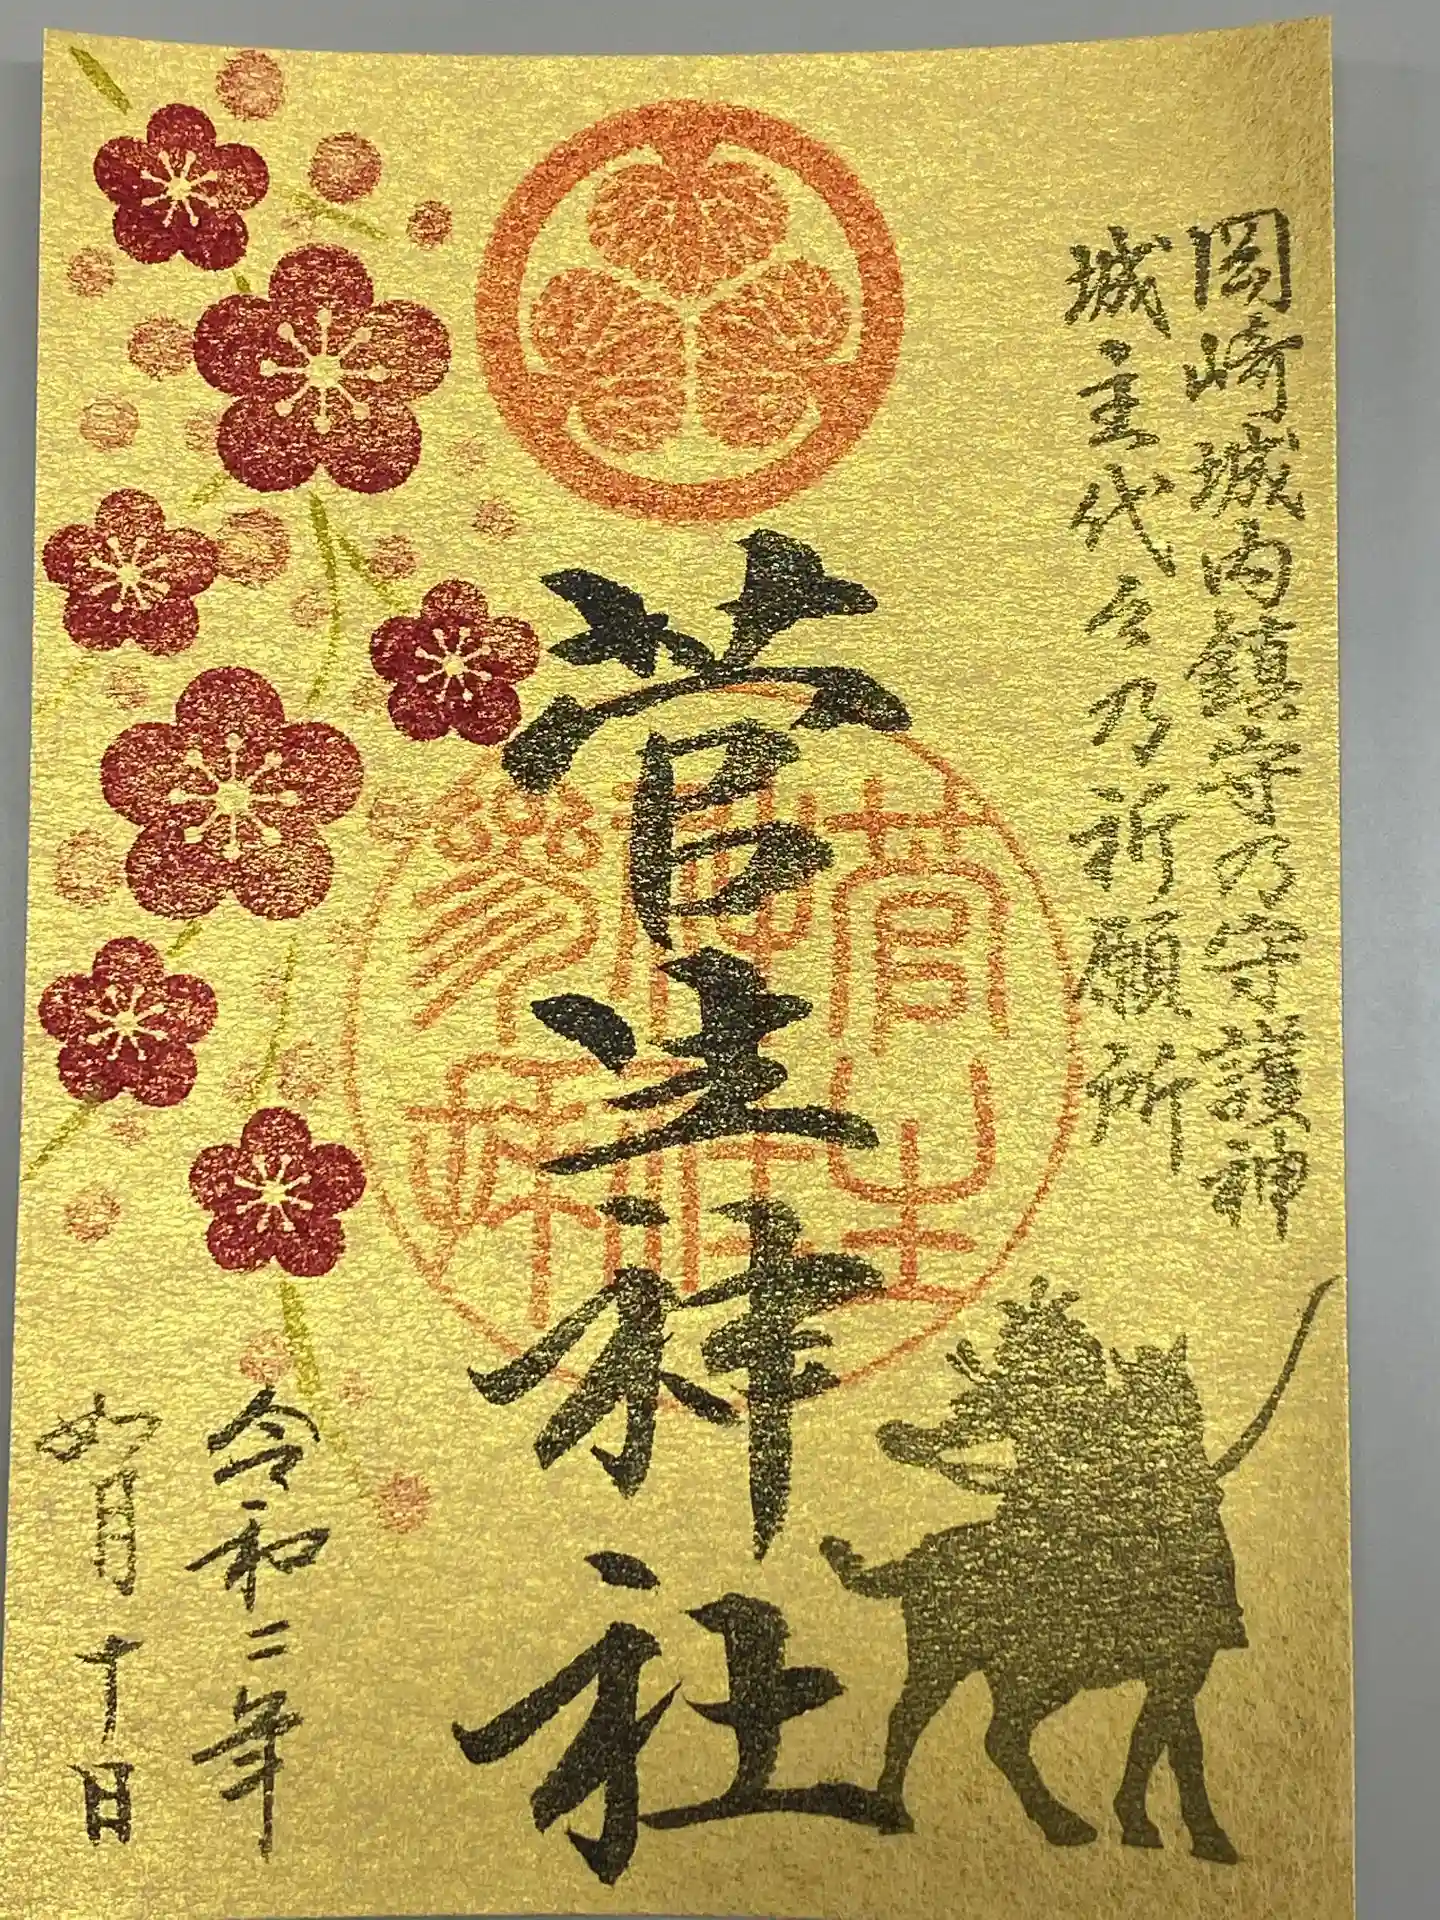 岡崎城内鎮守乃守護神
城主代々乃祈願所
菅生神社
菅生
神社
参拝
令和二年
如月十日